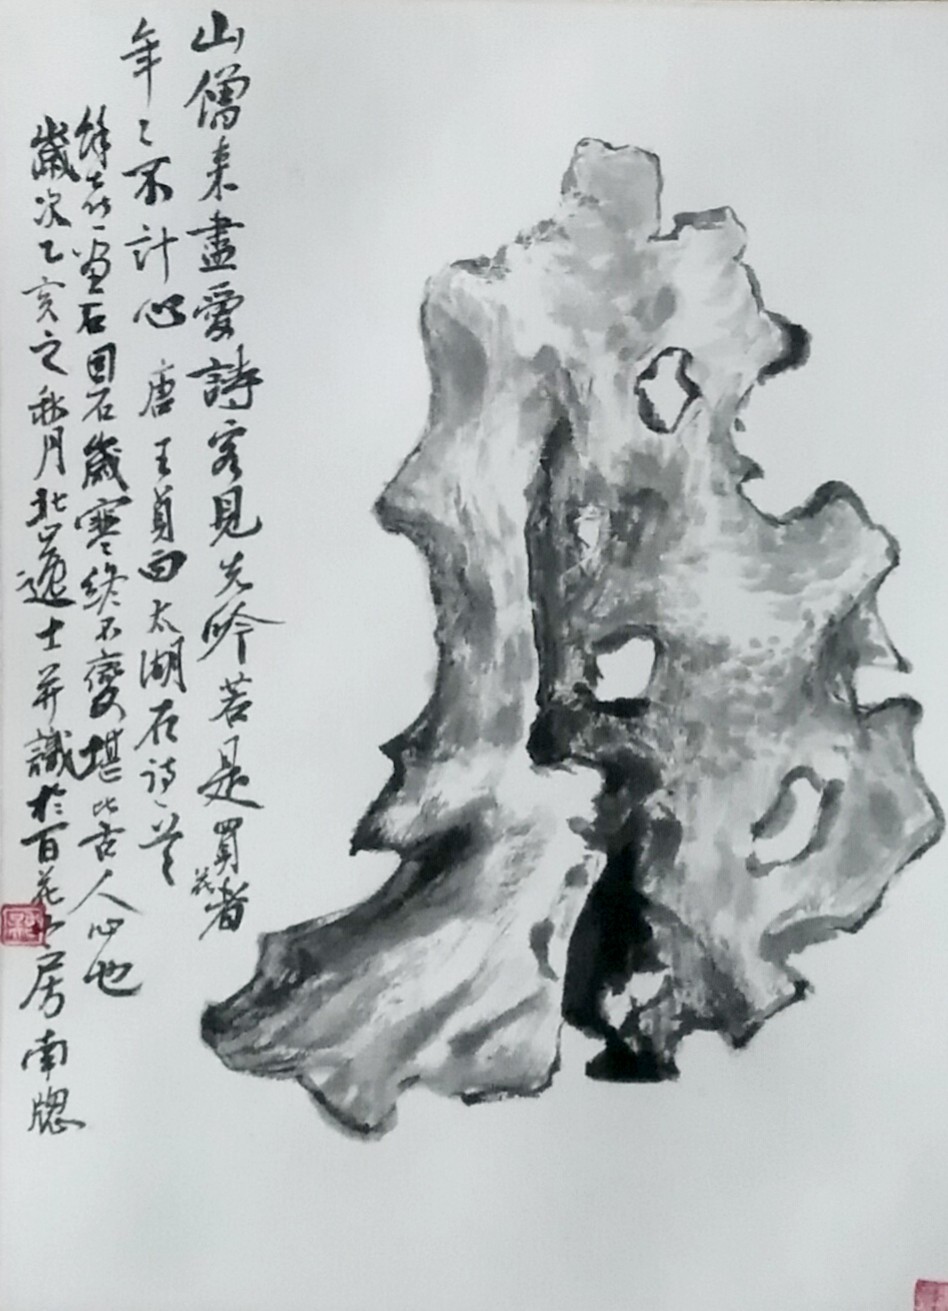 山僧来盡愛詩客見先吟若是買花者
年〻不計心 唐王貞白太湖石詩一首
余喜作畫石因石歲寒終不變堪比古人心也
歲次乙亥之秋月北山逸士并識於百花山房南牕